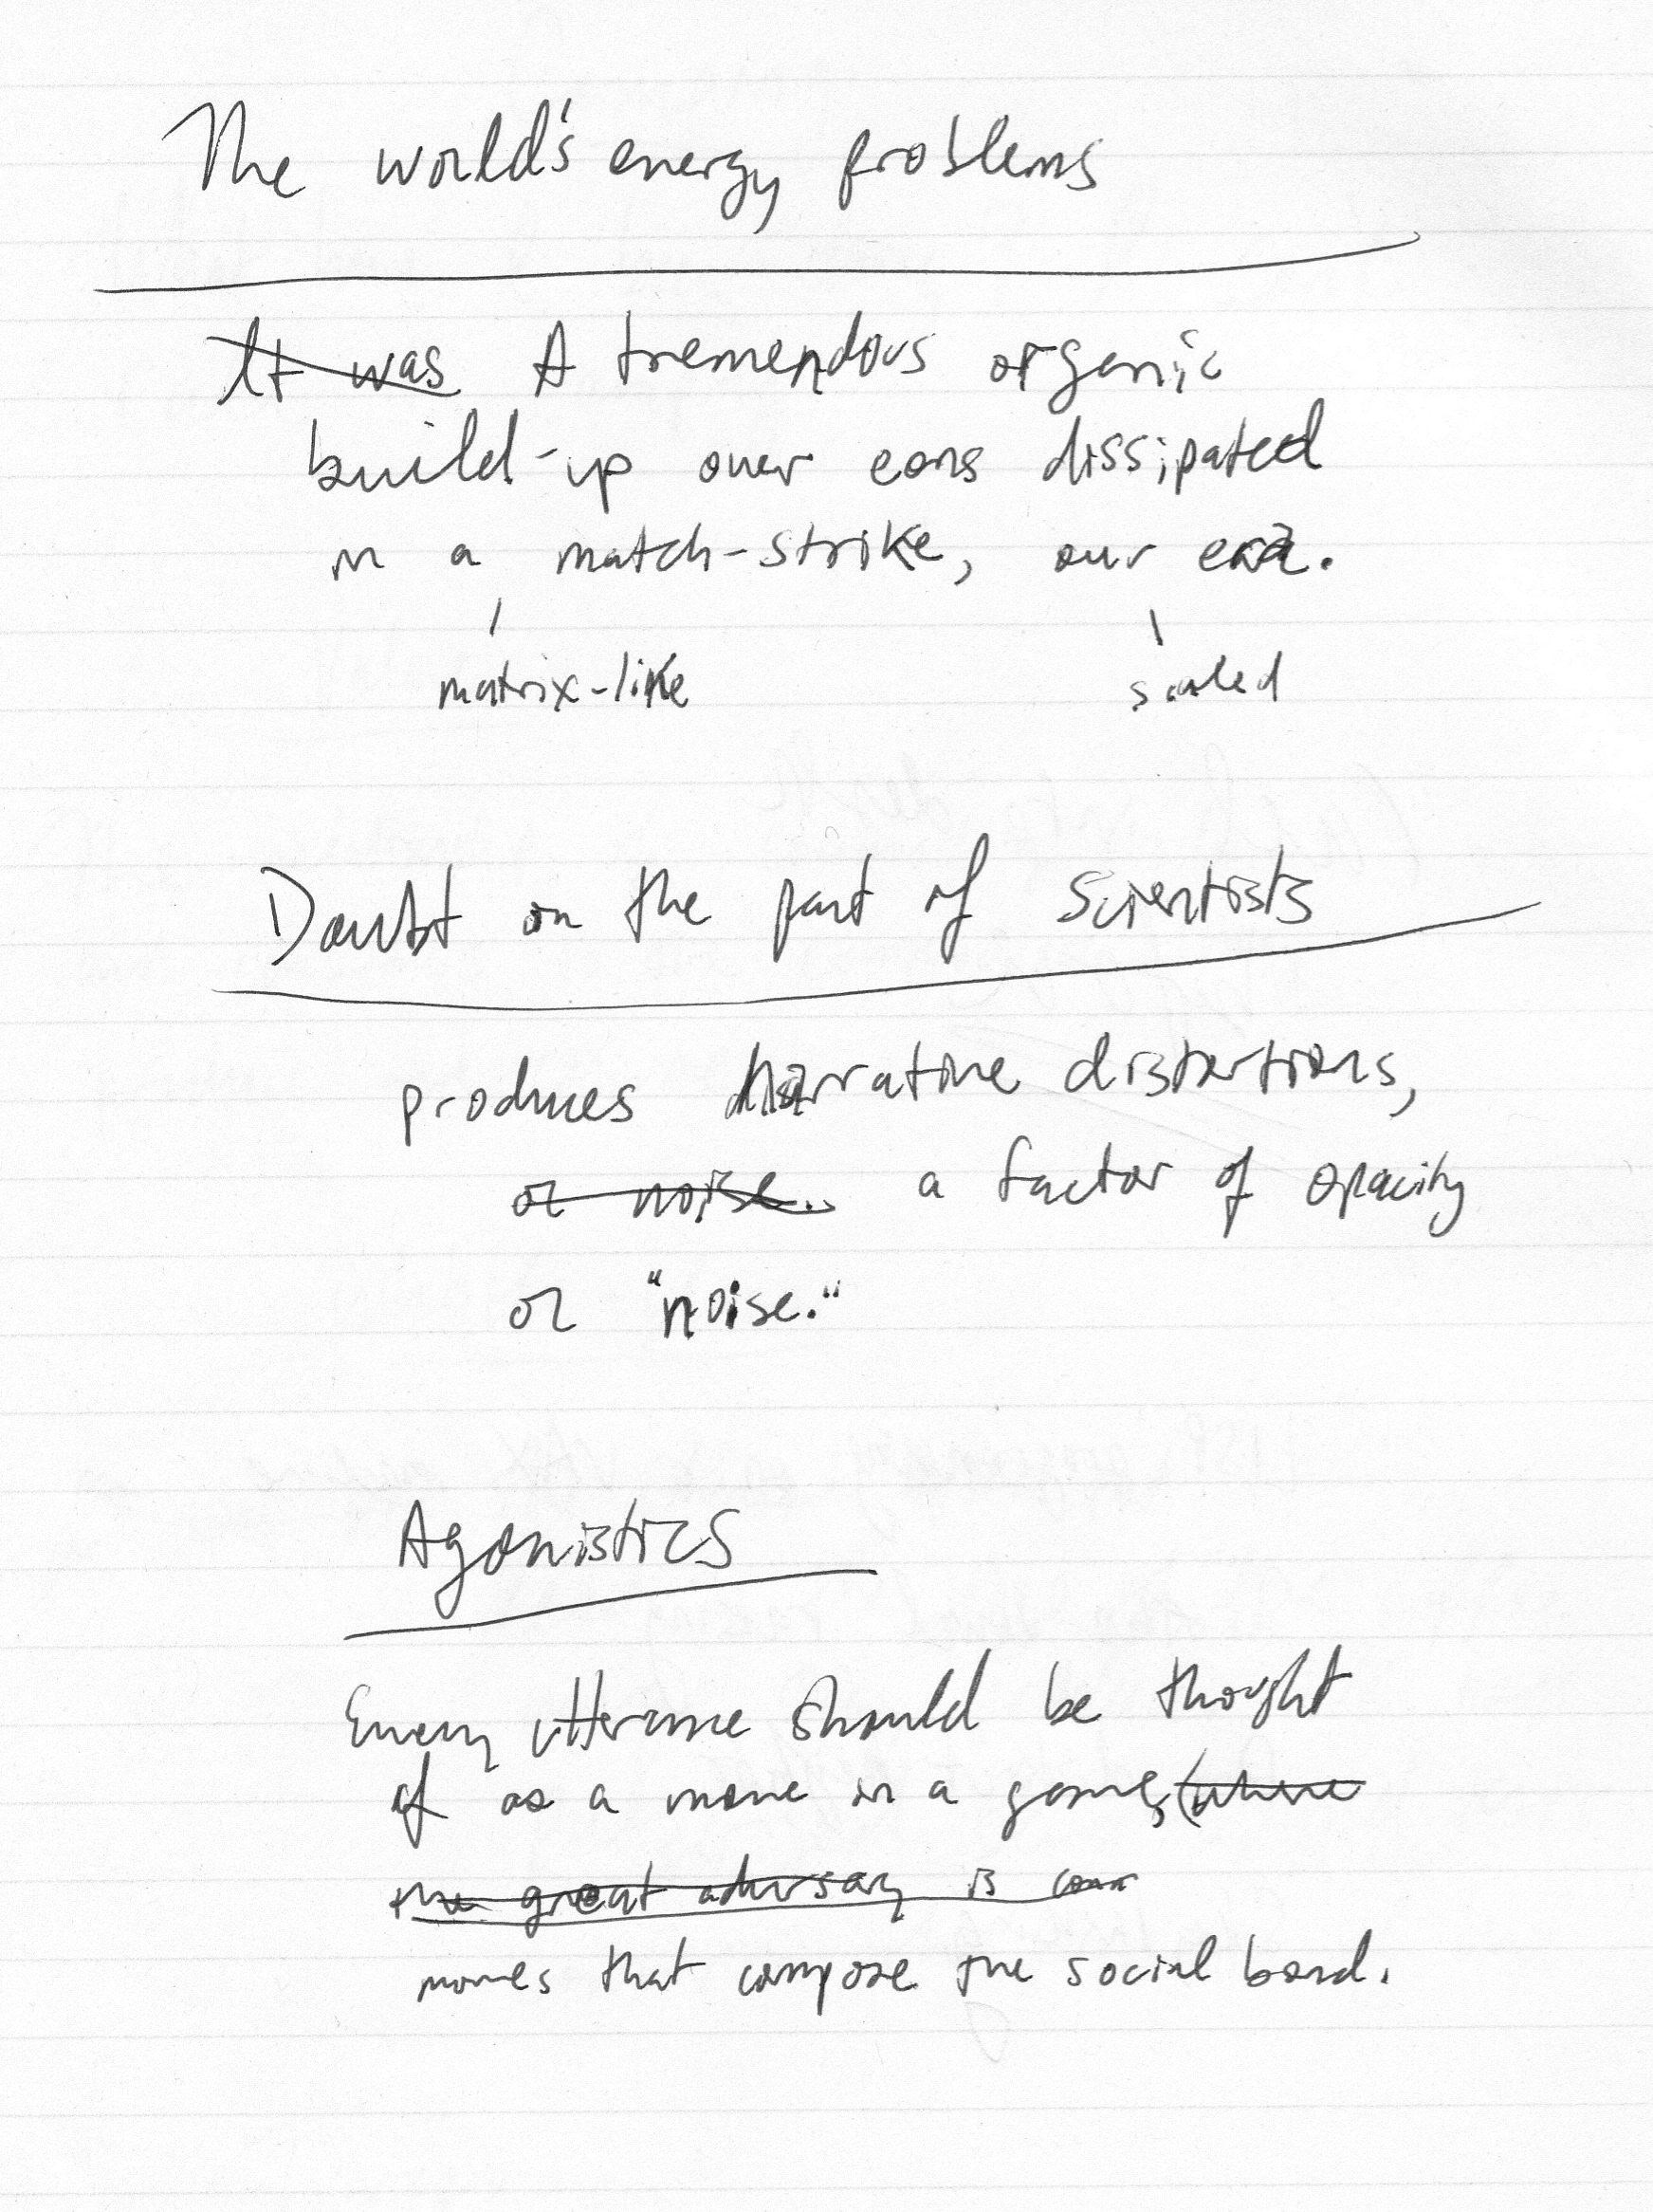 The world's energy problems
It was A tremendous organic
build-up over eons dissipated
in a match-strike, our era.
matrix-like
scaled
Doubt on the part of scientists
produces narrative distortions,
or noise.. a factor of opacity
or "noise."
Agonistics
Every utterance should be thought
of as a move in a game, (where
the great adversary is
moves that compose the social bond.